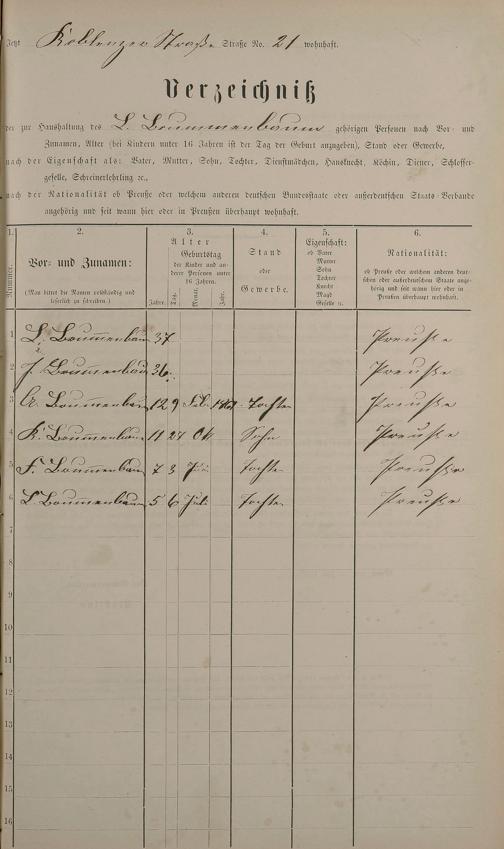 Jetzt Koblenzer Straße Straße No. 21 wohnhaft.
Verzeichniß
der zur Haushaltung des L. Baummenbaum gehörigen Personen nach Vor- und
Zunamen, Alter (bei Kindern unter 16 Jahren ist der Tag der Geburt anzugeben), Stand oder Gewerbe,
nach der Eigenschaft als: Vater, Mutter, Sohn, Tochter, Dienstmädchen, Hausknecht, Köchin, Diener, Schlosser-
geselle, Schreinerlehrling ꝛc.,
nach der Nationalität ob Preuße oder welchem anderen deutschen Bundesstaate oder außerdeutschen Staats-Verbande
angehörig und seit wann hier oder in Preußen überhaupt wohnhaft.
1. 2. 3. 4. 5. 6.
Nummer.
Vor- und Zunamen:
(Man bittet die Namen vollständig und
leserlich zu schreiben.)
Alter
Geburtstag
der Kinder und an-
deren Personen unter
16 Jahren.
Jahre. Tag. Monat. Jahr.
Stand
oder
Gewerbe.
Eigenschaft:
ob Vater
Mutter
Sohn
Tochter
Knecht
Magd
Geselle ꝛc.
Nationalität:
ob Preuße oder welchem anderen deut-
schen oder außerdeutschen Staate ange-
hörig und seit wann hier oder in
Preußen überhaupt wohnhaft.
1 L. Baummenbaum 37 Preuße
2 J. Baummenbaum 36. Preuße
3 Baummenbaum 12 9 Feb. Tochter Preuße
4 K. Baummenbaum 11 27 Ok Sohn Preuße
5 F. Baummenbaum 7 3 Tochter Preuße
6 L Baummenbaum 5 6 Juli Tochter Preuße
7
8
9
10
11
12
13
14
15
16